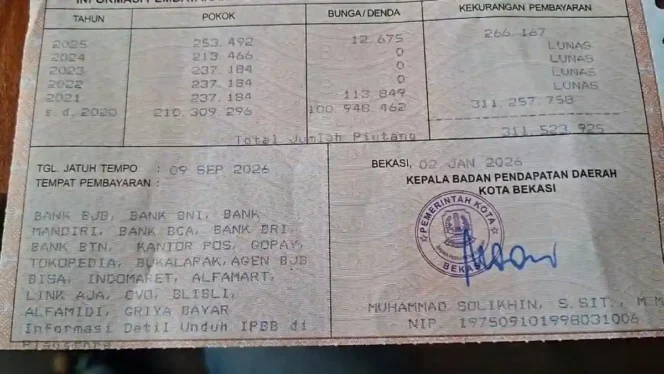 TAHUN POKOK BUNGA/DENDA KEKURANGAN PEMBAYARAN
2025 253.492 12.675 266.167
2024 213.466 0 LUNAS
2023 237.184 0 LUNAS
2022 237.184 0 LUNAS
2021 237.184 113.849 LUNAS
s.d.2020 210.309.296 100.948.462 311.257.758
Total Jumlah Piutang 311.523.925
TGL. JATUH TEMPO : 09 SEP 2026
TEMPAT PEMBAYARAN :
BANK BJB, BANK BNI, BANK
MANDIRI, BANK BCA, BANK BRI,
BANK BTN, KANTOR POS, GOPAY,
TOKOPEDIA, BUKALAPAK,AGEN BJB
BISA, INDOMARET, ALFAMART,
LINK AJA, OVO, BLIBLI,
ALFAMIDI, GRIYA BAYAR
Informasi Detil Unduh IPBB di
BEKASI, 02 JAN 2026
KEPALA BADAN PENDAPATAN DAERAH
KOTA BEKASI
PEMERINTAH KOTA
BEKASI
MUHAMMAD SOLIKHIN, S.SIT., M.M
NIP 197509101998031006